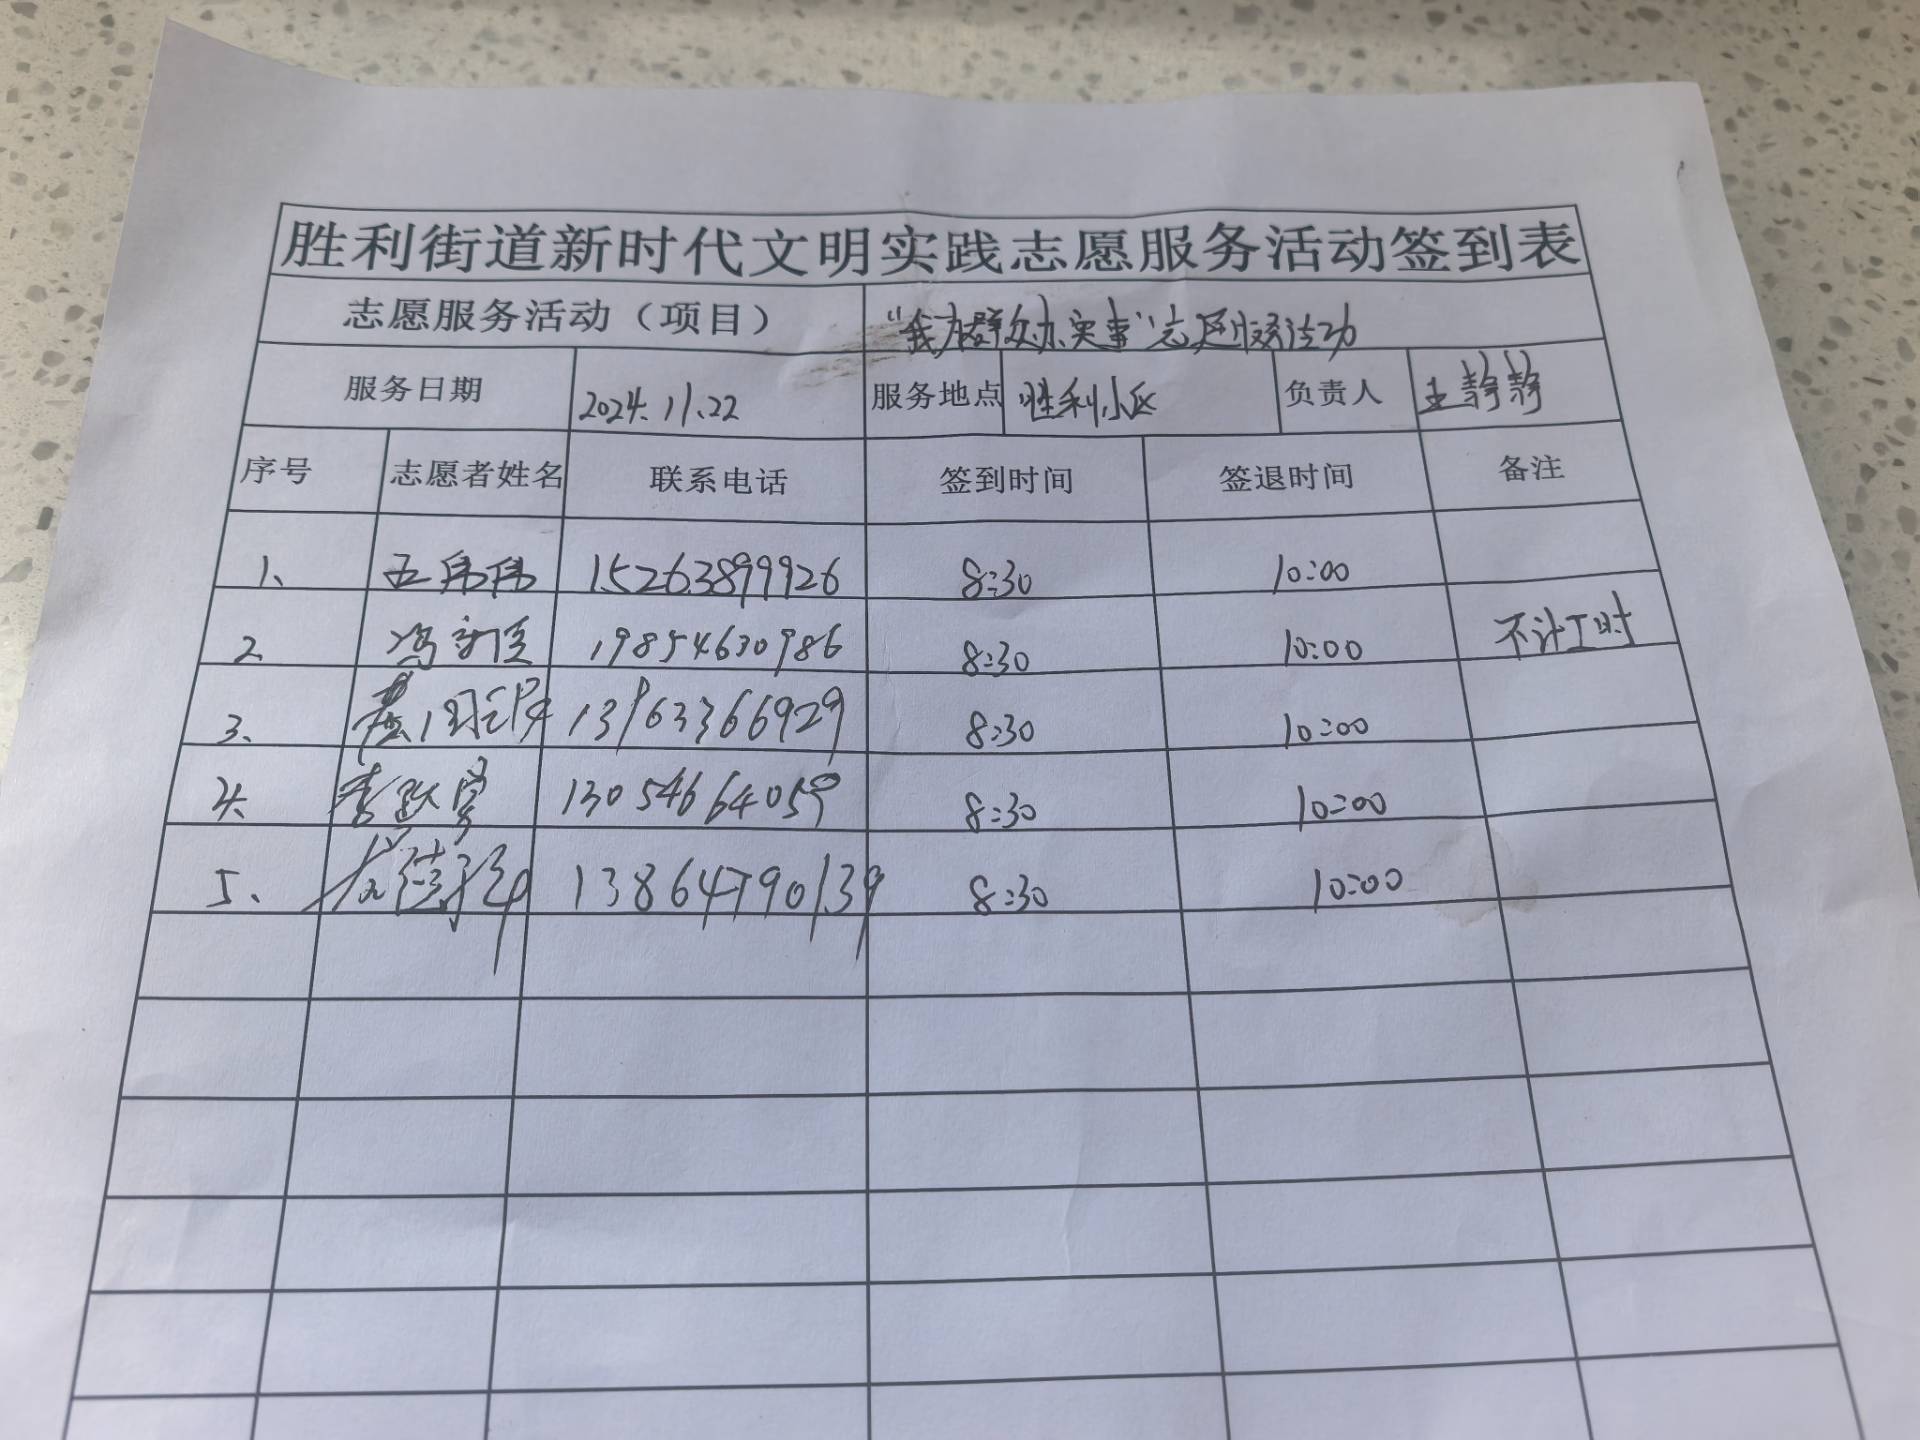 胜利街道新时代文明实践志愿服务活动签到表
志愿服务活动（项目） “我为群众办实事”志愿服务活动
服务日期 2024.11.22 服务地点 胜利小区 负责人 王静静
序号 志愿者姓名 联系电话 签到时间 签退时间 备注
1、 王伟伟 15263899926 8:30 10:00
2、 冯 19854630986 8:30 10:00 不计工时
3、 13963366929 8:30 10:00
4、 李跃 13054664059 8:30 10:00
5、 13864790139 8:30 10:00